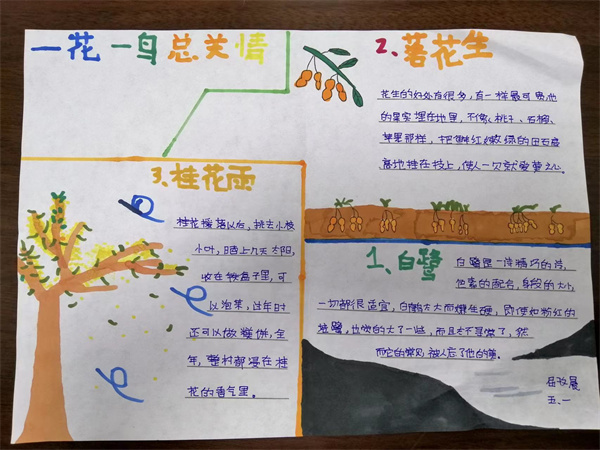 一花一鸟总关情
2、落花生
花生的好处有很多，有一样最可贵，他
的果实埋在地里，不像桃子、石榴、
苹果那样，把鲜红嫩绿的果实高
高地挂在枝上，使人一见就爱慕之心。
3.桂花雨
桂花摇落以后，挑去小枝
小叶，晒上几天太阳，
收在铁盒子里，可
以泡茶，过年时
还可以做糕饼，全
年，整村都浸在桂
花的香气里。
1、白鹭
白鹭是一首精巧的诗，
色素的配合，身段的大小，
一切都很适宜，白鹤太大而嫌生硬，即使如粉红的
朱鹭，也觉的大了一些，而且太不寻常了，然
而它的常见，被人忘了他的美。
五、一